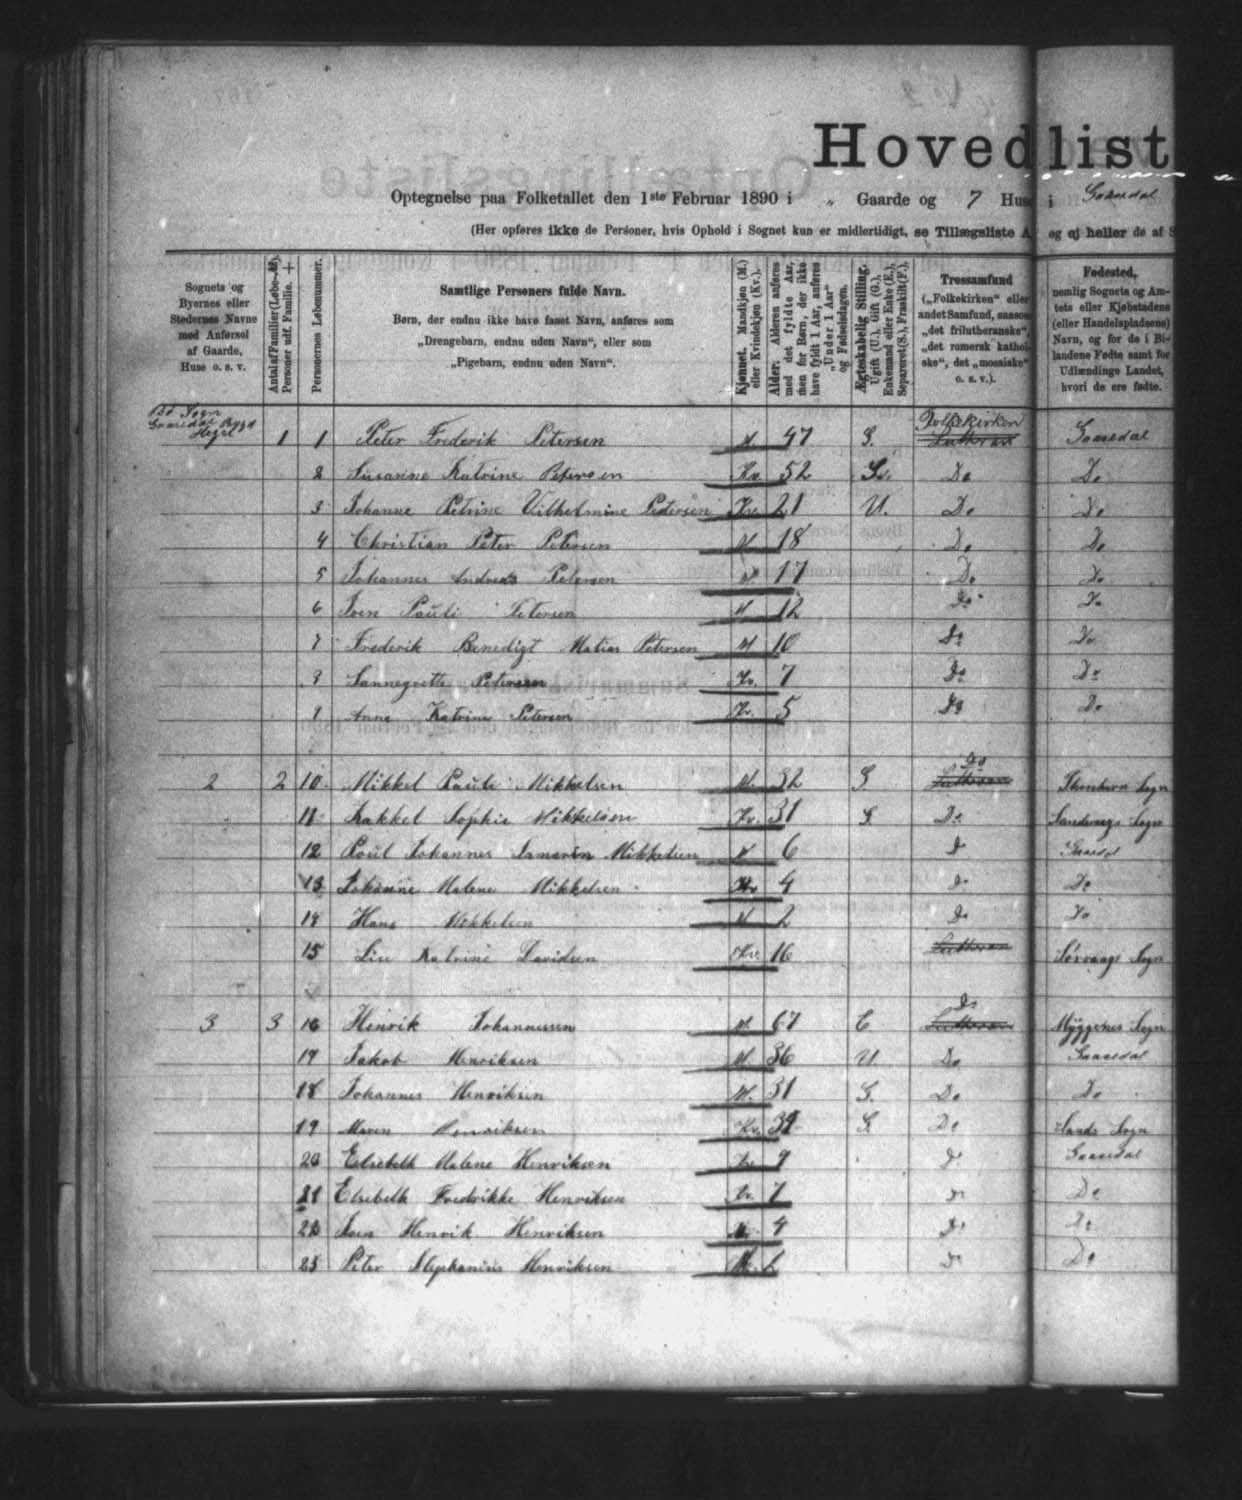 Hovedlist
Optegnelse paa Folketallet den 1ste Februar 1890 i „ Gaarde og 7 Huse i Gaasedal
(Her opføres ikke de Personer, hvis Ophold i Sognet kun er midlertidigt, se Tillægsliste A og ej heller de af S
Sognets og Byernes eller Stedernes Navne med Anførsel af Gaarde, Huse o. s. v.
Antal af Familier (Løbe-№). Personer udf. Familie. +
Personernes Løbenummer.
Samtlige Personers fulde Navn.
Børn, der endnu ikke have faaet Navn, anføres som
„Drengebarn, endnu uden Navn“, eller som
„Pigebarn, endnu uden Navn“.
Kjønnet. Mandkjøn (M.) eller Kvindekjøn (Kv.).
Alder. Alderen anføres med det fyldte Aar, men for Børn, der ikke have fyldt 1 Aar, anføres „Under 1 Aar“ og Fødselsdagen.
Ægteskabelig Stilling. Ugift (U.), Gift (G.), Enkemand eller Enke (E.), Separeret (S.), Fraskilt (F.).
Trossamfund („Folkekirken“ eller andet Samfund, saasom „det frilutheranske“, „det romersk katholske“, det „mosaiske“ o. s. v.).
Fødested, nemlig Sognets og Amtets eller Kjøbstadens (eller Handelspladsens) Navn, og for de i Bilandene Fødte samt for Udlændinge Landet, hvori de ere fødte.
Bø Sogn
Gaasedal Bygd
1 1 Peter Frederik Petersen M. 47 G. Folkekirken Lutheran Gaasedal
2 Susanne Katrine Petersen Kv. 52 G. Do Do
3 Johanne Petrine Vilhelmine Petersen Kv. 21 U. Do Do
4 Christian Peter Petersen M 18 Do Do
5 Johannes Andreas Petersen M 17 Do Do
6 Joen Pauli Petersen M 12 Do Do
7 Frederik Benedigt Matias Petersen M 10 Do Do
8 Sannegrethe Petersen Kv. 7 Do Do
9 Anna Katrine Petersen Kv. 5 Do Do
2 2 10 Mikkel Pauli Mikkelsen M. 32 G Do Lutheran Sogn
11 Rakkel Sophie Mikkelsen Kv. 31 G. Do Sandevags Sogn
12 Poul Johannes Mikkelsen M 6 Do Gaasedal
13 Johanne Malene Mikkelsen Kv 4 Do Do
14 Hans Mikkelsen M 2 Do Do
15 Lise Katrine Davidsen Kv. 16 Lutheran Sørvaags Sogn
3 3 16 Henrik Johannessen M. 67 E Do Lutheran Myggenes Sogn
17 Jakob Henriksen M 36 U. Do Gaasedal
18 Johannes Henriksen M. 31 G. Do Do
19 Maren Henriksen Kv. 39 G Do Sands Sogn
20 Elsebeth Malene Henriksen Kv 9 Do Gaasedal
21 Elsebeth Fredrikke Henriksen Kv. 7 Do Do
22 Joen Henrik Henriksen M. 4 Do Do
23 Peter Stephanius Henriksen M. 2 Do Do